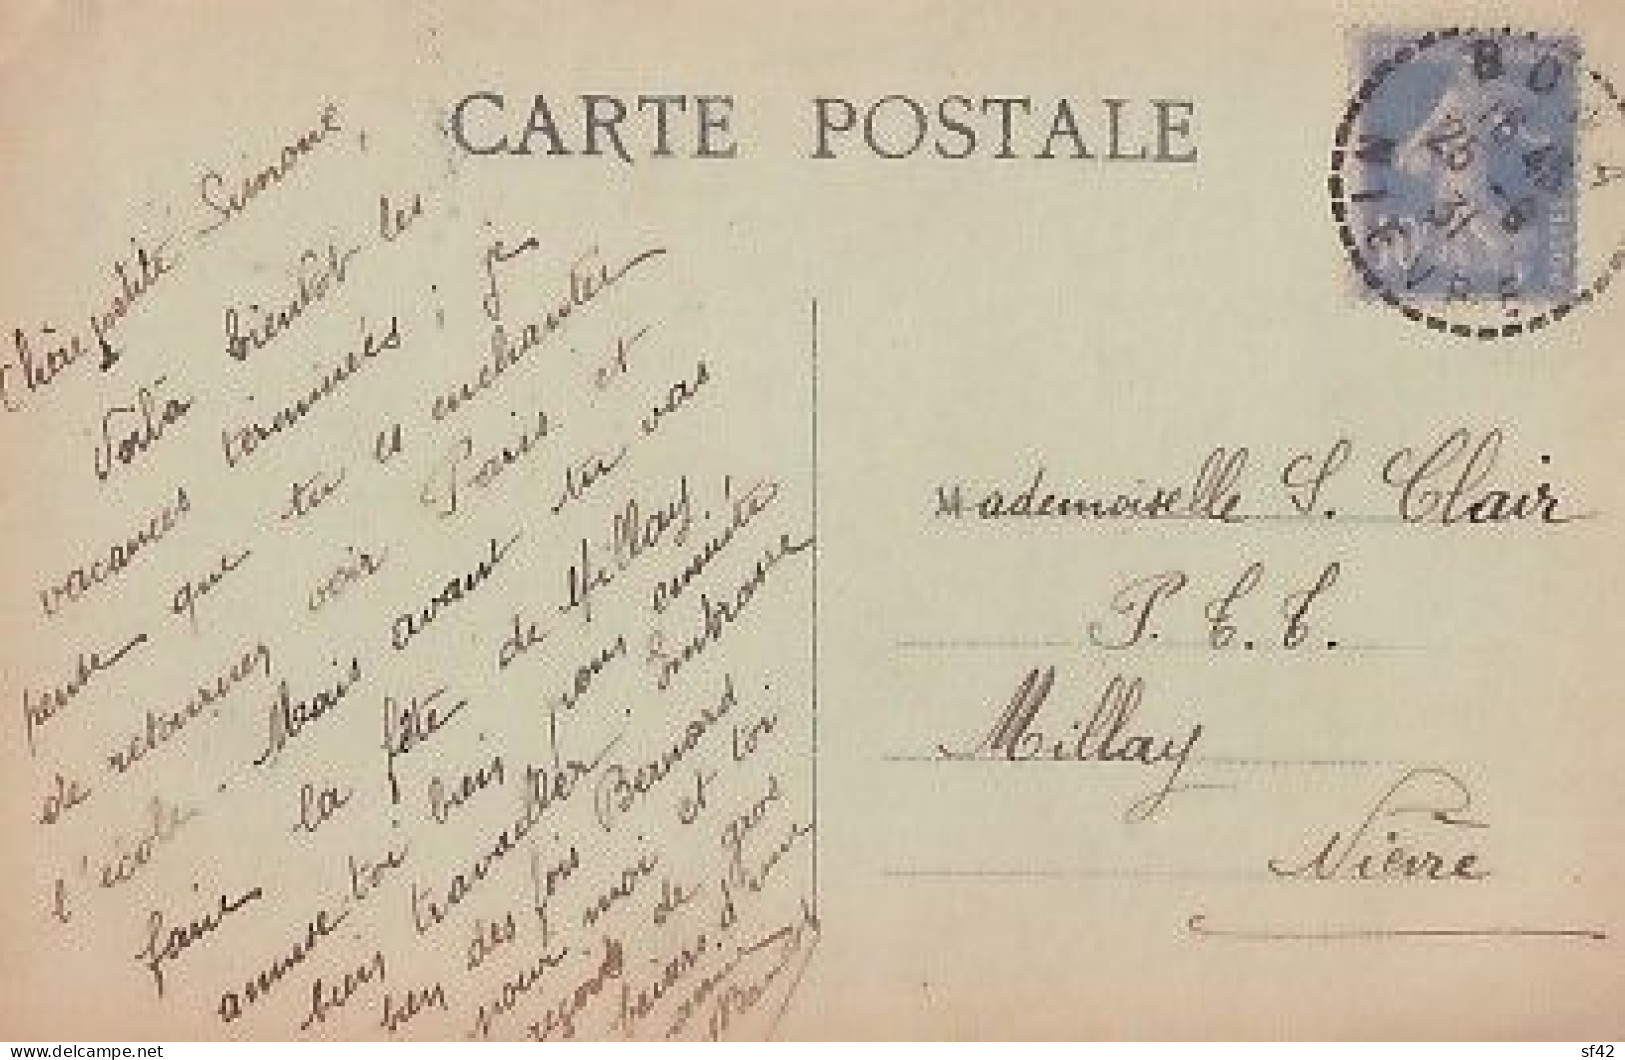 CARTE POSTALE
BO
18 40
20 -8
31
NIEVRE
Chère petite Simone,
Voilà bientôt les
vacances terminées ; je
pense que tu es enchantée
de retourner voir Paris et
l'école. Mais avant tu vas
faire la fête de Millay !
amuse-toi bien pour ensuite
bien travailler. Embrasse
bien des fois Bernard
pour moi et toi
reçois de gros
baisers d'une
amie
Mademoiselle S. Clair
P. E. E.
Millay
Nièvre
delcampe.net
sf42